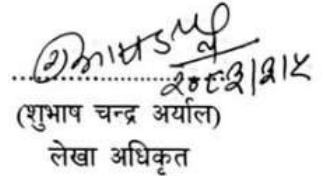 २०८२|३|१५
(शुभाष चन्द्र अर्याल)
लेखा अधिकृत